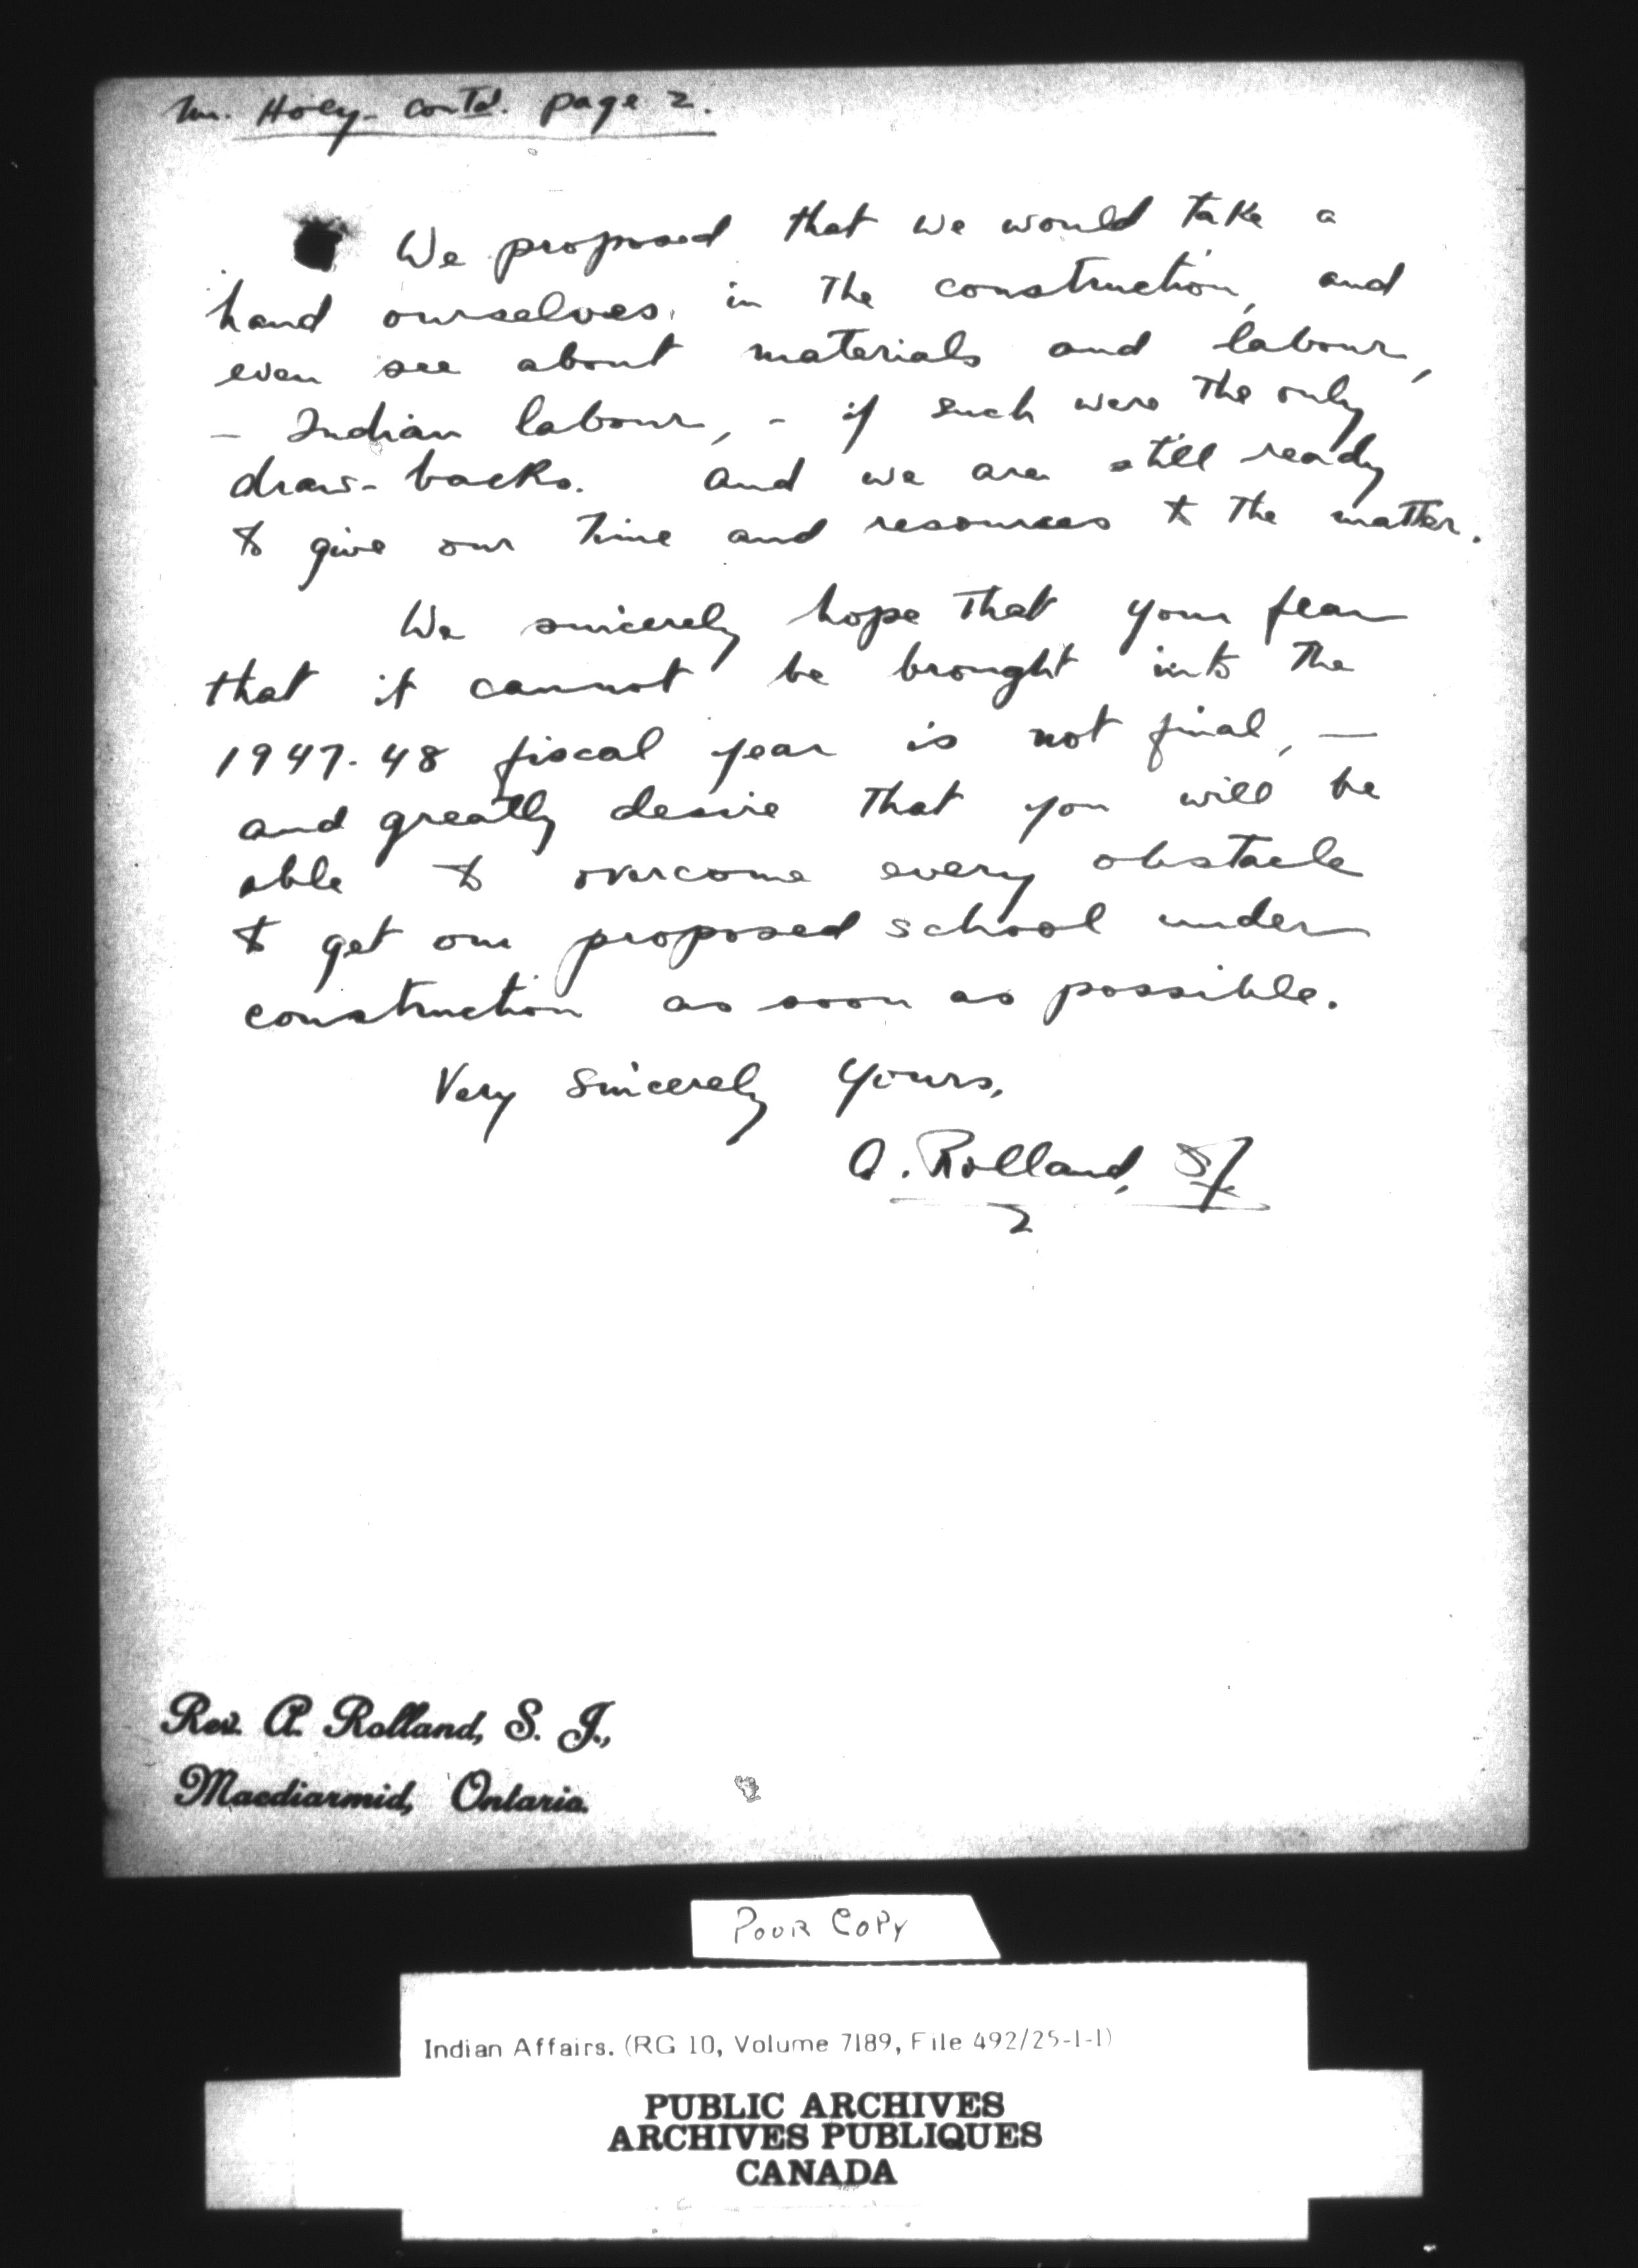 Mr. Hoey - contd. page 2.
We proposed that we would take a
hand ourselves, in the construction, and
even see about materials and labour,
- Indian labour, - if such were the only
draw-backs. And we are still ready
to give our time and resources to the matter.
We sincerely hope that your fear
that it cannot be brought into the
1947-48 fiscal year is not final, —
and greatly desire that you will be
able to overcome every obstacle
to get our proposed school under
construction as soon as possible.
Very Sincerely Yours,
A. Rolland, SJ
Rev. A. Rolland, S. J.,
Macdiarmid, Ontario.
POUR COPY
Indian Affairs. (RG 10, Volume 7189, File 492/25-1-1)
PUBLIC ARCHIVES
ARCHIVES PUBLIQUES
CANADA